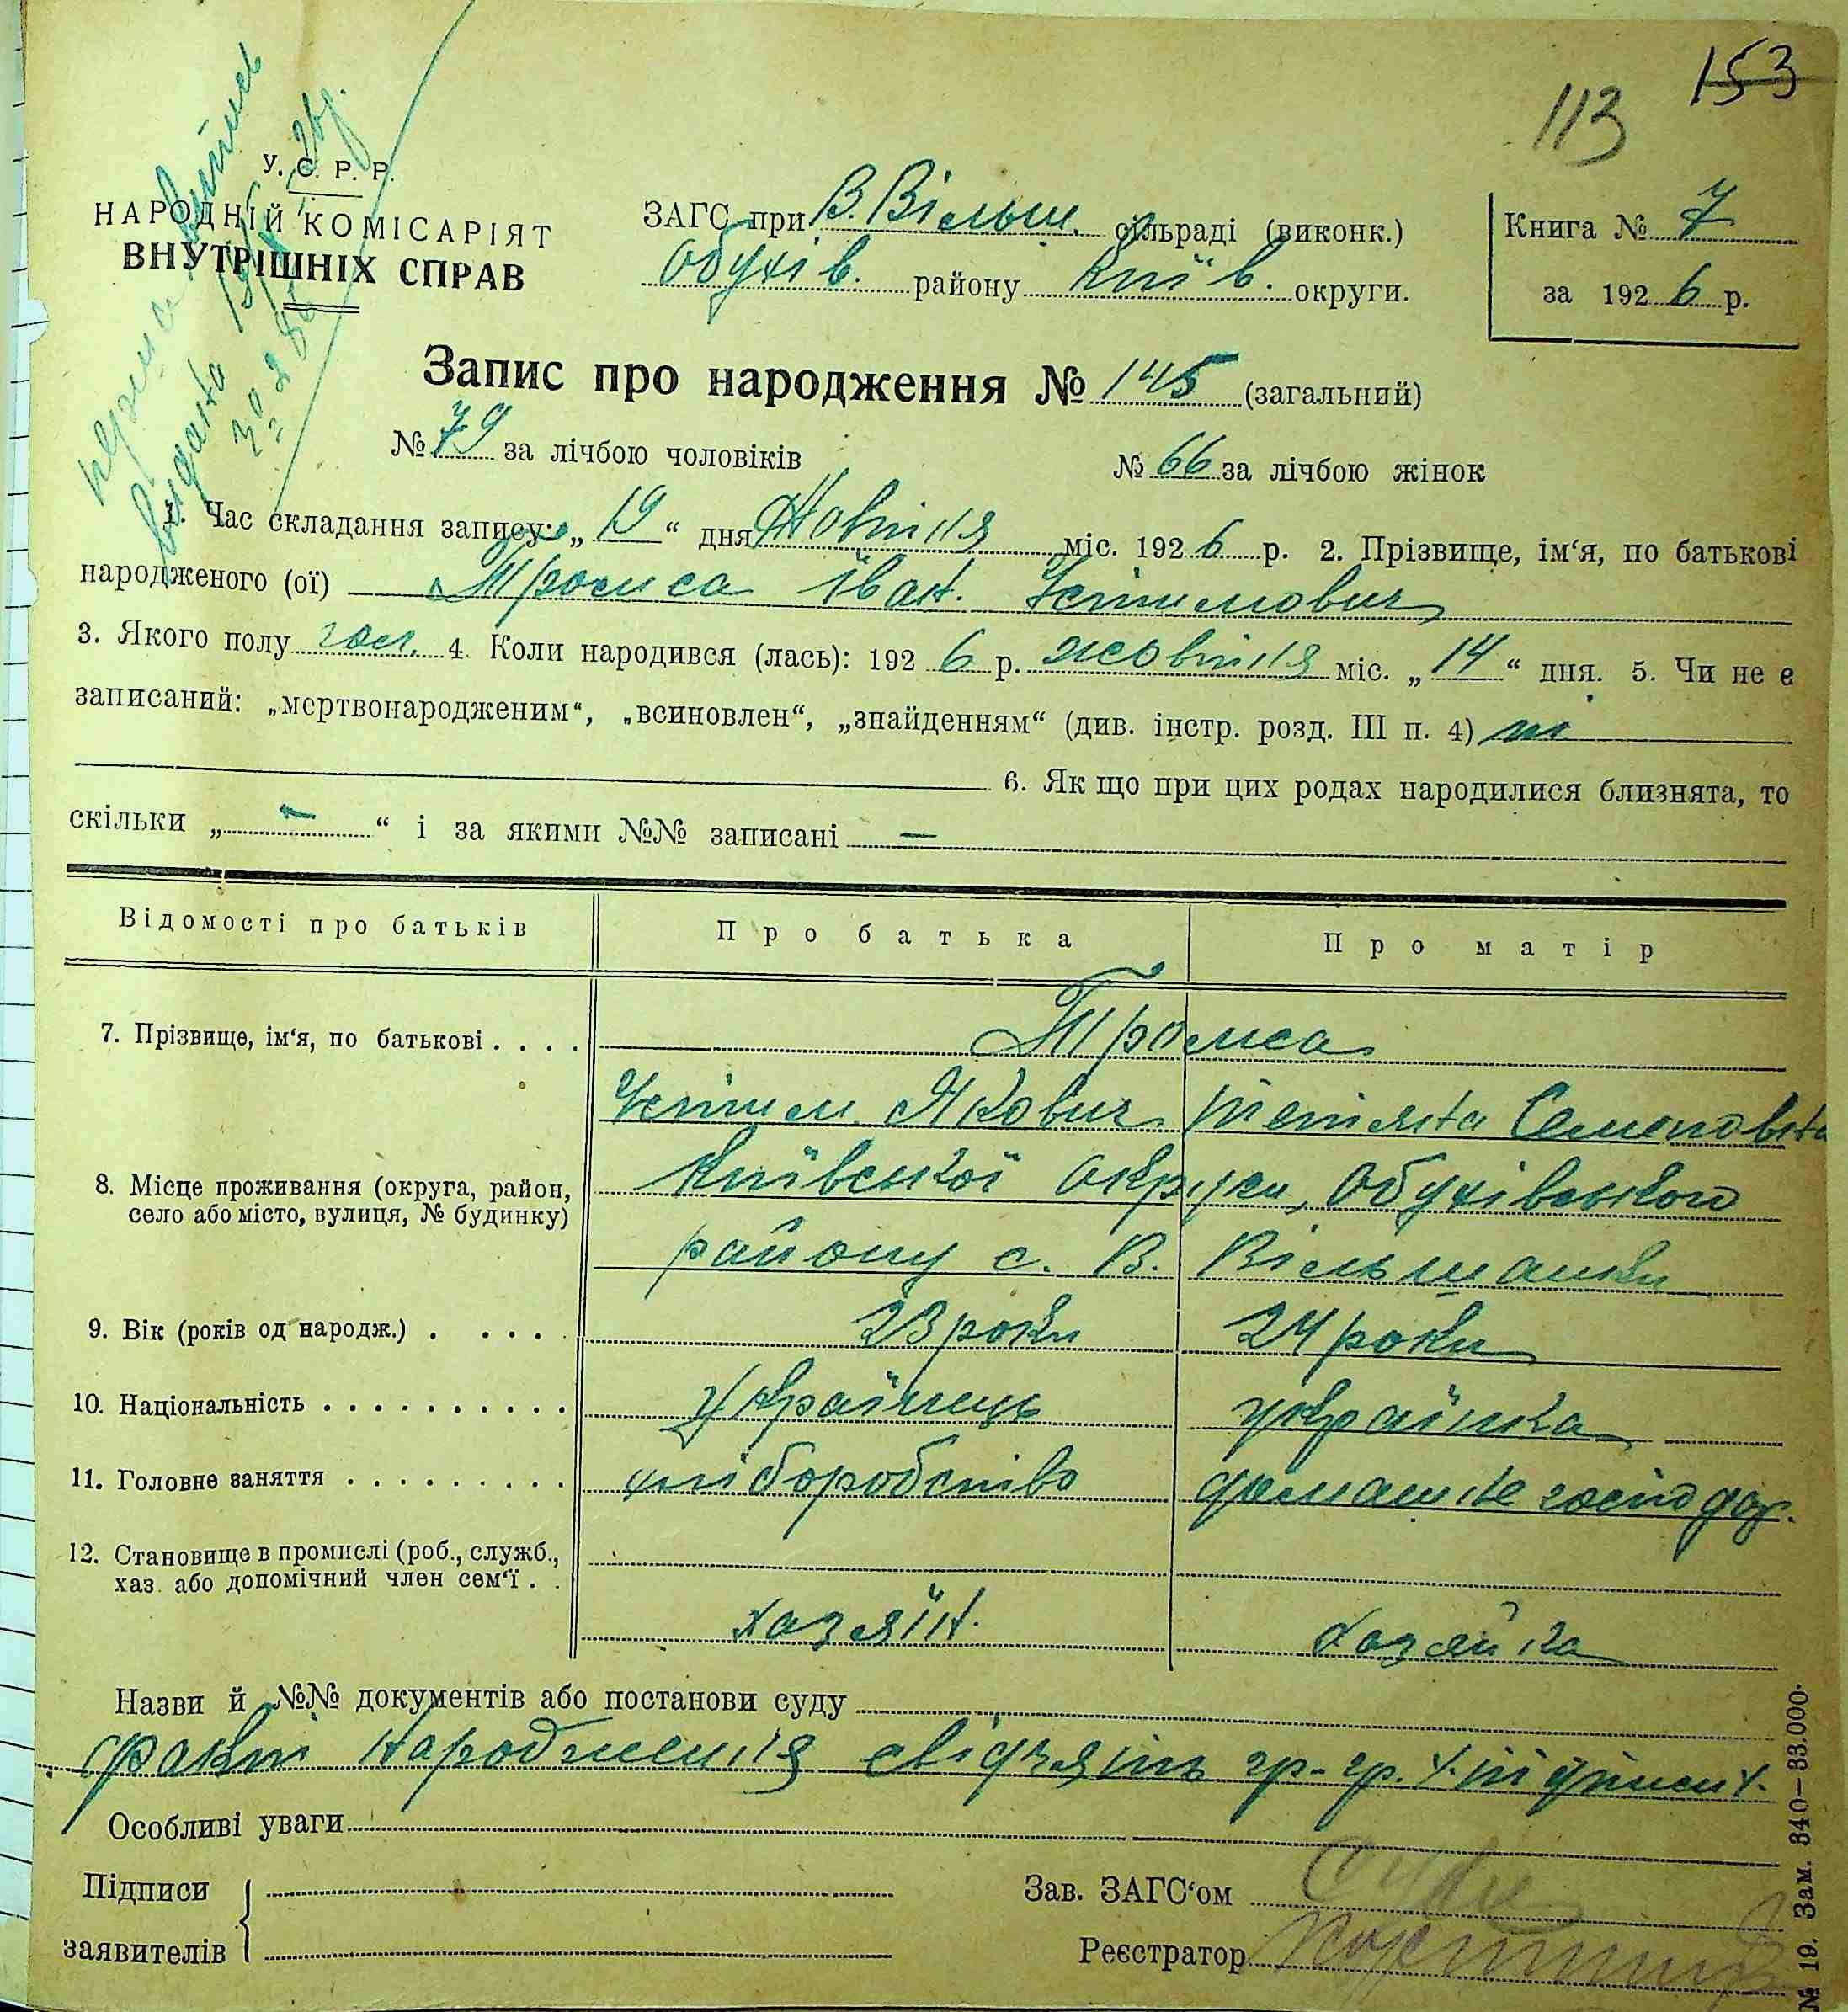 153
113
У. С. Р. Р.
НАРОДНІЙ КОМІСАРІЯТ
ВНУТРІШНІХ СПРАВ
ЗАГС при В. Вільш. сільраді (виконк.)
Обухів. району Київ. округи.
Книга № 7
за 1926 р.
Запис про народження № 145 (загальний)
№ 79 за лічбою чоловіків № 66 за лічбою жінок
1. Час складання запису: „19“ дня Жовтня міс. 1926 р. 2. Прізвище, ім‘я, по батькові
народженого (ої) Іван Устимович
3. Якого полу чол. 4. Коли народився (лась): 1926 р. жовтня міс. „14“ дня. 5. Чи не є
записаний: „мертвонародженим“, „всиновлен“, „знайденням“ (див. інстр. розд. III п. 4) ні
6. Як що при цих родах народилися близнята, то
скільки „ — “ і за якими №№ записані —
Відомості про батьків Про батька Про матір
7. Прізвище, ім‘я, по батькові . . . .
Устим Якович Тетяна Семеновна
8. Місце проживання (округа, район, село або місто, вулиця, № будинку) Київської округи, Обухівського
району с. В. Вільшанки
9. Вік (років од народж.) . . . . . 23 роки 24 роки
10. Національність . . . . . . . . . . українець українка
11. Головне заняття . . . . . . . . . хліборобство домашнє господар.
12. Становище в промислі (роб., служб., хаз. або допомічний член сем‘ї . .
хазяїн хазяйка
Назви й №№ документів або постанови суду
факт народження свідчять гр-гр.
Особливі уваги
Підписи
заявителів
Зав. ЗАГС‘ом
Реєстратор
№ 19. Зам. 840—33.000.